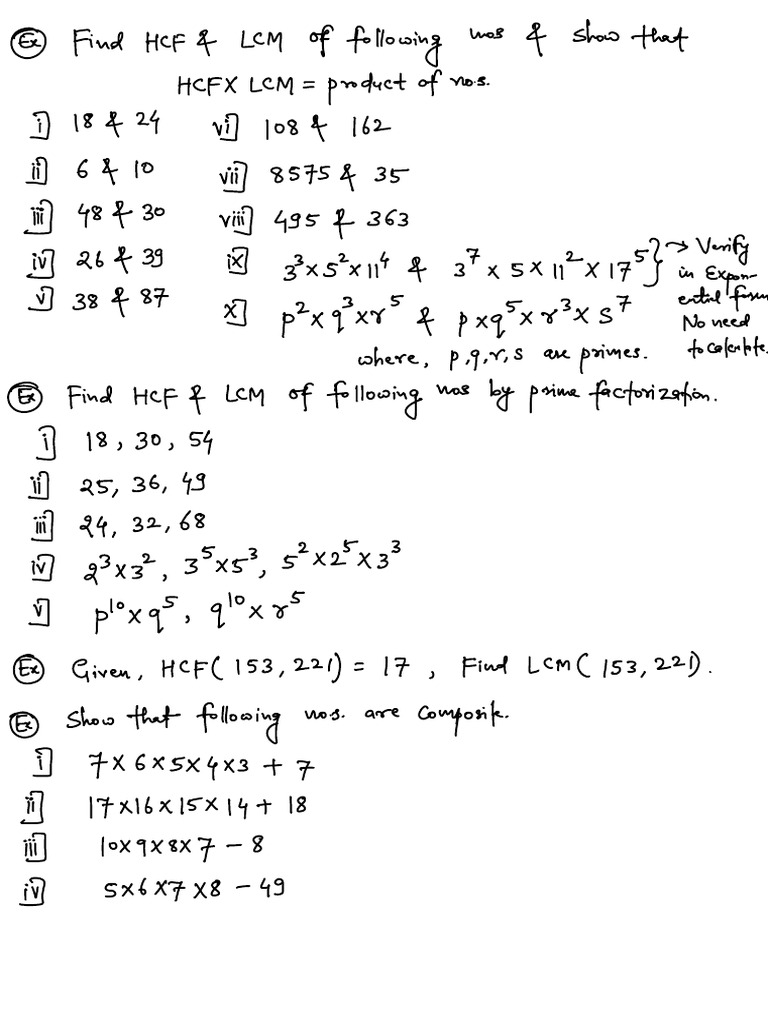 Ex Find HCF & LCM of following nos & show that
HCF X LCM = product of nos.
i] 18 & 24 vi] 108 & 162
ii] 6 & 10 vii] 8575 & 35
iii] 48 & 30 viii] 495 & 363
iv] 26 & 39 ix] 3³ × 5² × 11⁴ & 3⁷ × 5 × 11² × 17⁵ } → Verify in Expon-ential form No need to calculate.
v] 38 & 87 x] p² × q³ × r⁵ & p × q⁵ × r³ × s⁷
where, p, q, r, s are primes.
Ex Find HCF & LCM of following nos by prime factorization.
i] 18, 30, 54
ii] 25, 36, 49
iii] 24, 32, 68
iv] 2³ × 3², 3⁵ × 5³, 5² × 2⁵ × 3³
v] p¹⁰ × q⁵, q¹⁰ × r⁵
Ex Given, HCF( 153, 221) = 17, Find LCM( 153, 221).
Ex Show that following nos. are composite.
i] 7 × 6 × 5 × 4 × 3 + 7
ii] 17 × 16 × 15 × 14 + 18
iii] 10 × 9 × 8 × 7 – 8
iv] 5 × 6 × 7 × 8 – 49